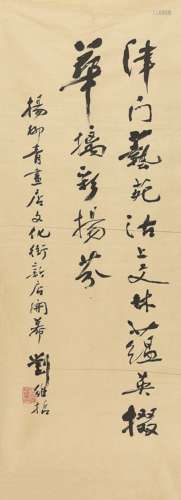 津门艺苑沽上文林蕴英掇
华摛彩扬芬
杨柳青画店文化街新店开幕
刘维哲